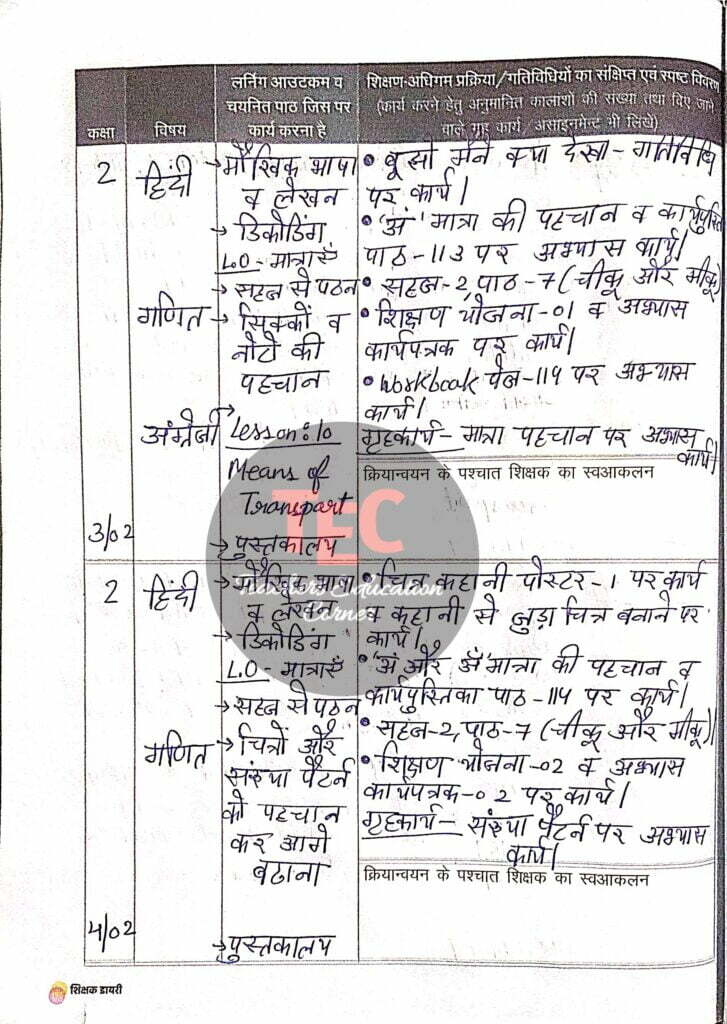 कक्षा
विषय
लर्निंग आउटकम व
चयनित पाठ जिस पर
कार्य करना है
शिक्षण-अधिगम प्रक्रिया/गतिविधियों का संक्षिप्त एवं स्पष्ट विवरण
(कार्य करने हेतु अनुमानित कालांशों की संख्या तथा दिए जाने
वाले गृह कार्य, असाइनमेन्ट भी लिखें)
2
हिंदी
→ मौखिक भाषा
व लेखन
→ डिकोडिंग
L.O - मात्राएँ
→ सहज से पठन
• बूझो मैंने क्या देखा - गतिविधि
पर कार्य।
• 'अं' मात्रा की पहचान व कार्यपुस्ति
पाठ - 113 पर अभ्यास कार्य।
• सहज-2, पाठ-7 (चीकू और मीकू)
गणित
→ सिक्कों व
नोटो की
पहचान
• शिक्षण योजना-01 व अभ्यास
कार्यपत्रक पर कार्य।
• Workbook पेज-114 पर अभ्यास
कार्य।
अंग्रेजी
→ Lesson: 10
Means of
Transport
→ पुस्तकालय
गृहकार्य - मात्रा पहचान पर अभ्यास
कार्य।
क्रियान्वयन के पश्चात शिक्षक का स्वआकलन
3/02
TEC
Teachers Education
Corner
2
हिंदी
→ मौखिक भाषा
व लेखन
→ डिकोडिंग
L.O - मात्राएँ
→ सहज से पठन
• चित्र कहानी पोस्टर-1 पर कार्य
व कहानी से जुड़ा चित्र बनाने पर
कार्य।
• 'अं और अँ' मात्रा की पहचान व
कार्यपुस्तिका पाठ -114 पर कार्य।
• सहज-2, पाठ-7 (चीकू और मीकू)।
गणित
→ चित्रों और
संख्या पैटर्न
को पहचान
कर आगे
बढाना
• शिक्षण योजना-02 व अभ्यास
कार्यपत्रक-02 पर कार्य।
गृहकार्य - संख्या पैटर्न पर अभ्यास
कार्य।
क्रियान्वयन के पश्चात शिक्षक का स्वआकलन
4/02
→ पुस्तकालय
शिक्षक डायरी